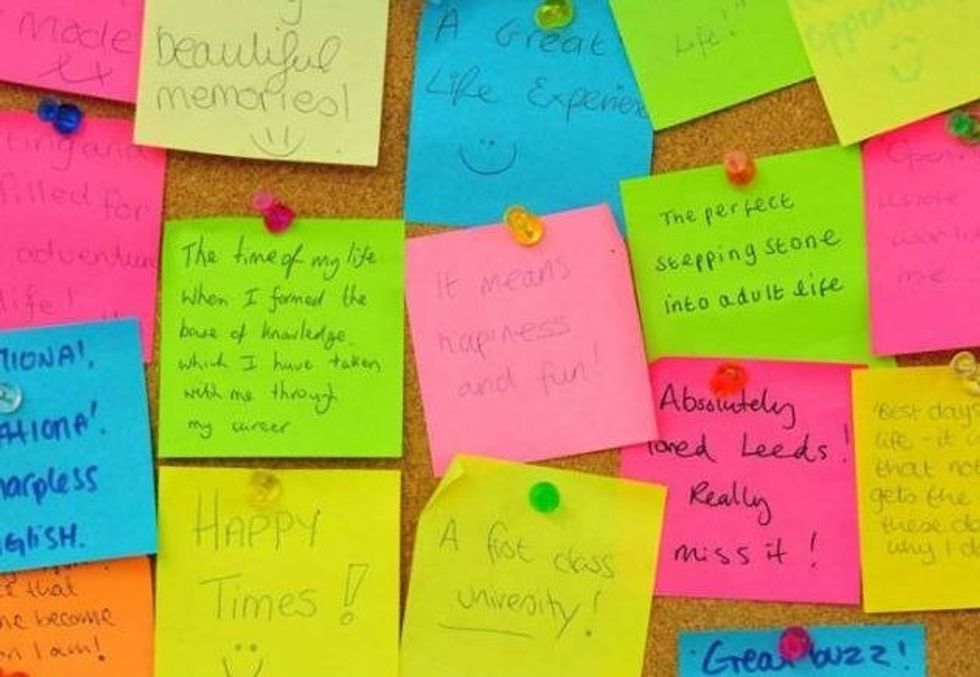 made
xx
beautiful
memories!
A Great
Life Experien
Life!"
opportu
ting and
filled for
adventur
life!
The time of my life
when I formed the
base of knowledge
which I have taken
with me through
my career.
It means
hapiness
and fun!
The perfect
stepping stone
into adult life
TIONA!.
ATIONA!.
harpless
NGLISH.
e that
me become
on I am!
HAPPY
TIMES!
A first class
university!
Absolutely
loved Leeds!
Really
miss it!
"Best day
life - it
that not
gets the
these d
why I d
Great buzz!